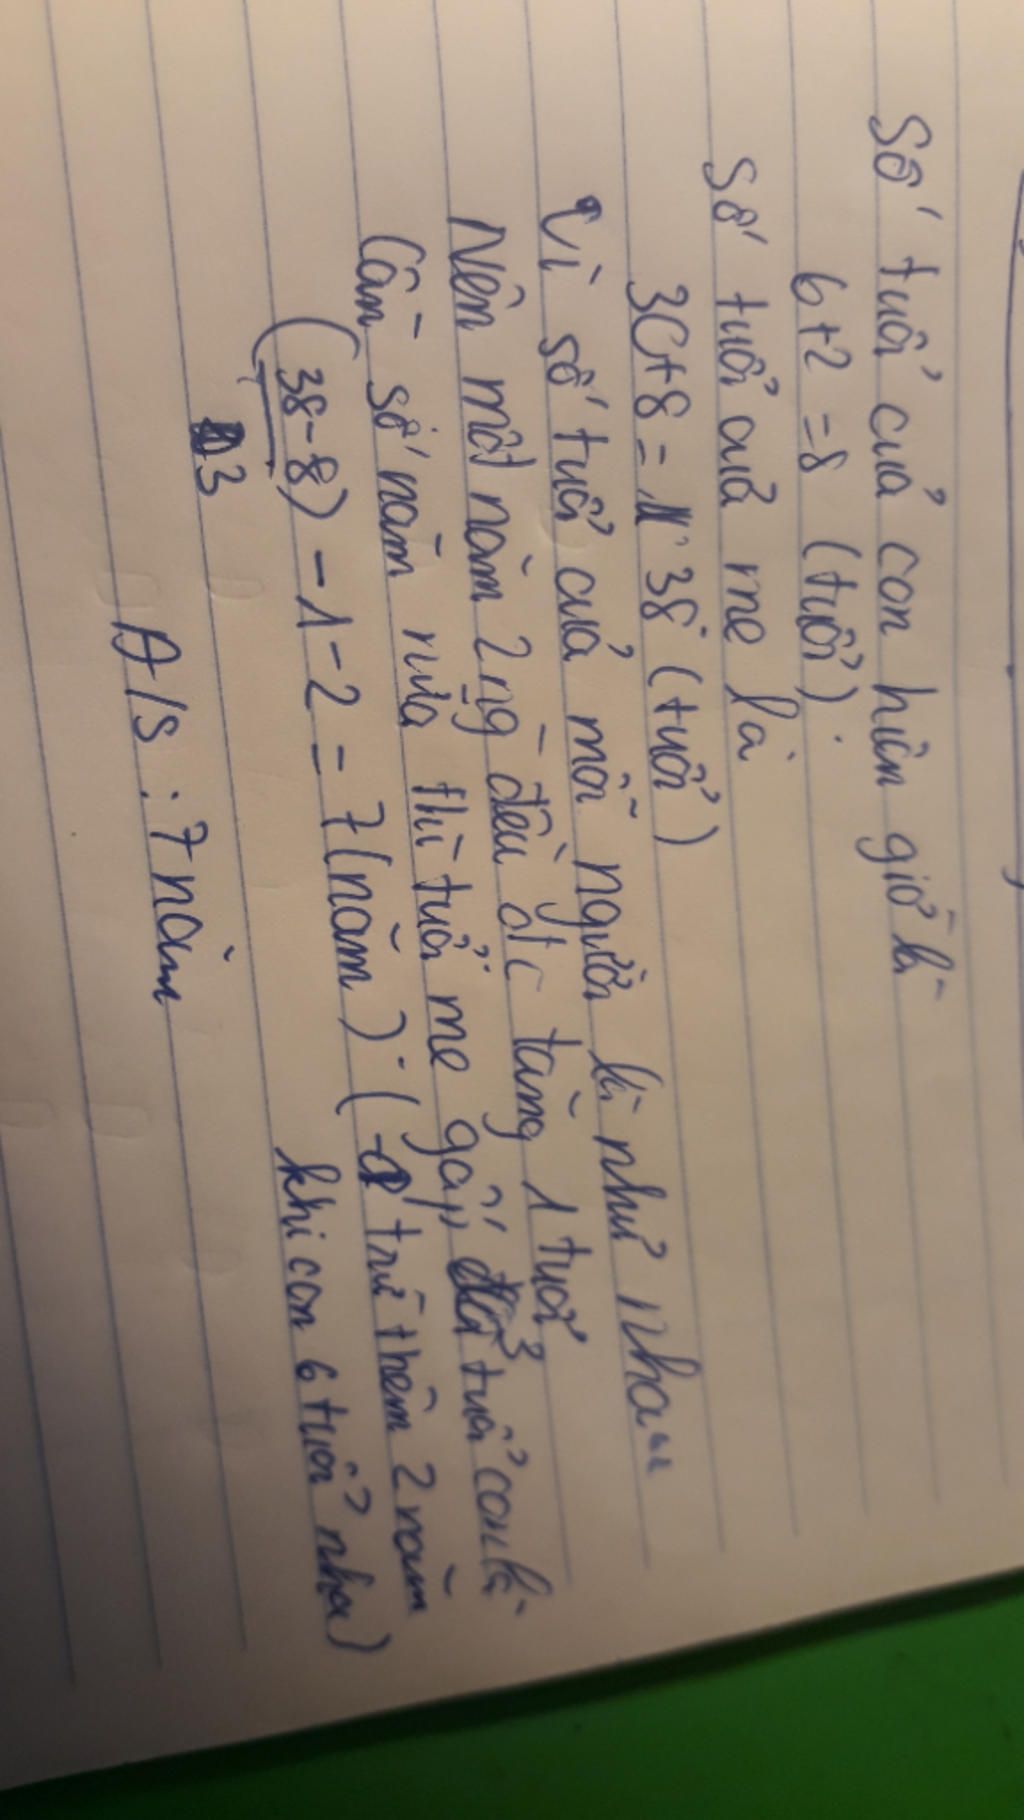 Số tuổi của con hiện giờ là
6+2 = 8 (tuổi).
Số tuổi của mẹ là
30+8 = 38 (tuổi)
Vì số tuổi của mỗi người là như nhau
Nên mỗi năm 2 ng đều đc tăng 1 tuổi
Cần số năm nữa thì tuổi mẹ gấp 3 tuổi con là
(38-8) - 1 - 2 = 7 (năm). (trừ thêm 2 năm
3 khi con 6 tuổi nha)
Đ/s : 7 năm